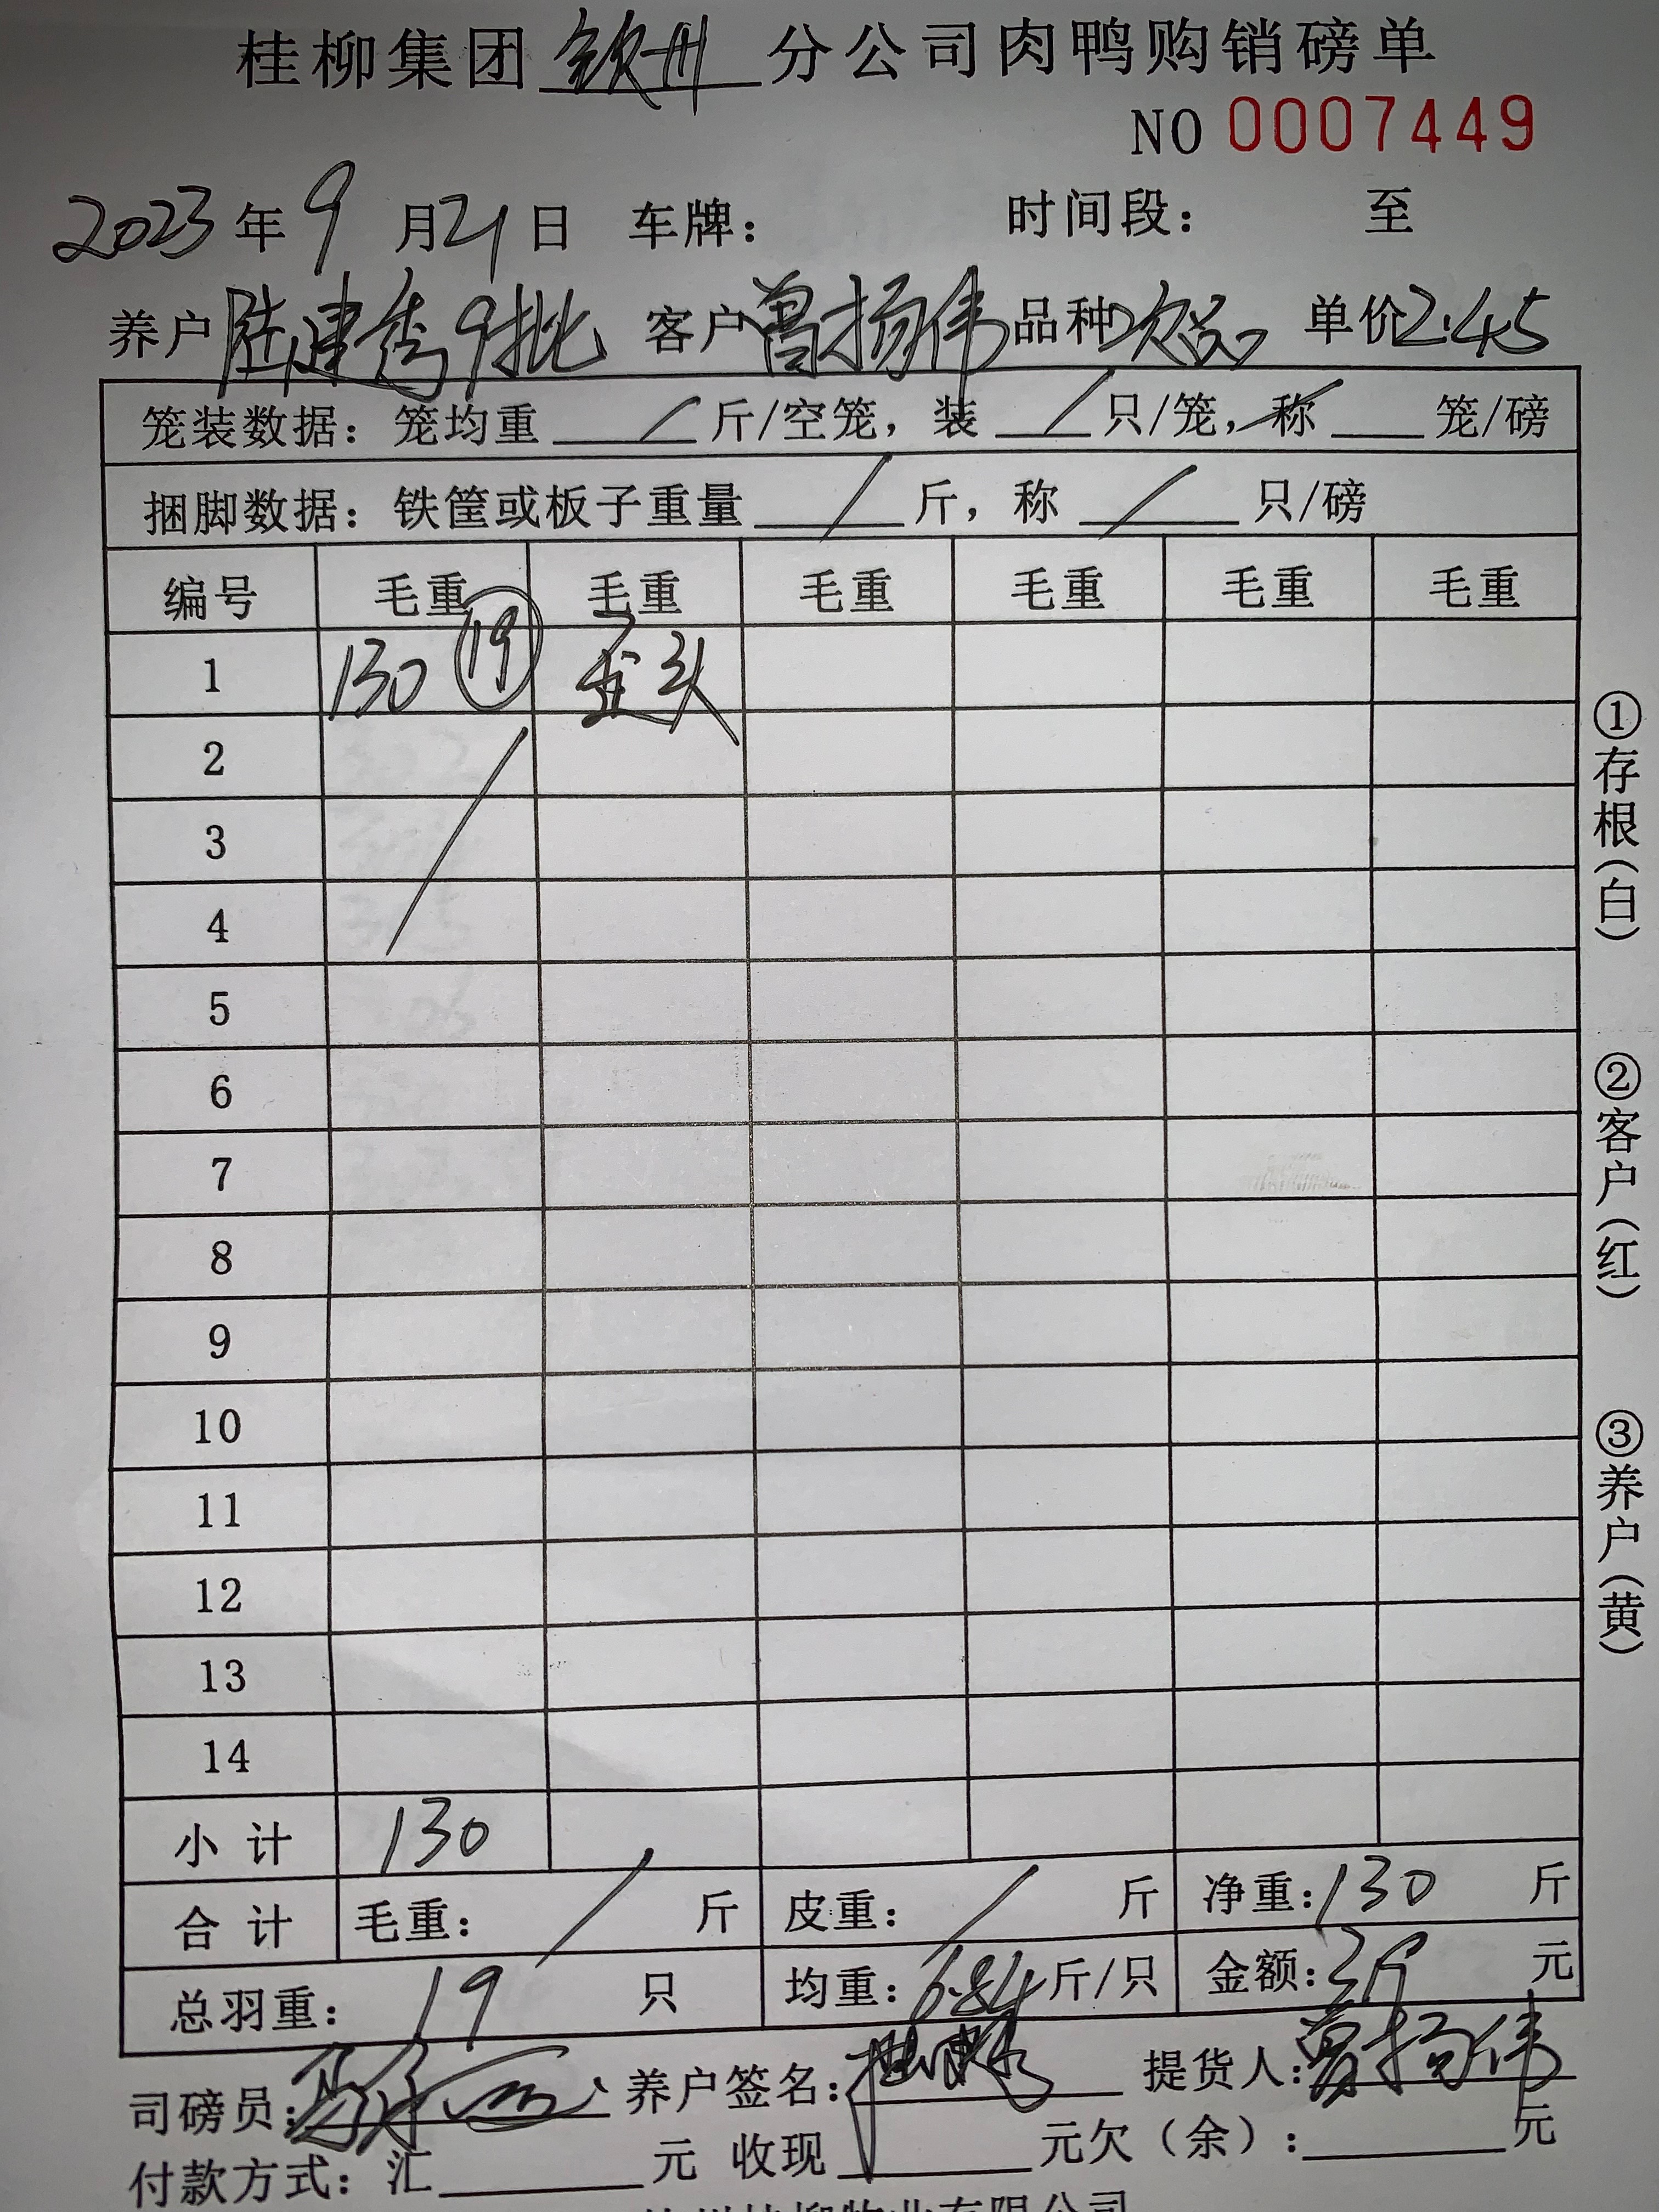 桂柳集团 钦州 分公司肉鸭购销磅单
NO 0007449
2023年9月21日 车牌： 时间段： 至
养户 陆建秀9批 客户 曾扬伟 品种 次品 单价 2.45
笼装数据：笼均重 / 斤/空笼，装 / 只/笼，称 / 笼/磅
捆脚数据：铁筐或板子重量 / 斤，称 / 只/磅
编号 毛重 毛重 毛重 毛重 毛重 毛重
1 130 19 歪头
2
3
4
5
6
7
8
9
10
11
12
13
14
小计 130
合计 毛重： / 斤 皮重： / 斤 净重：130 斤
总羽重： 19 只 均重：6.84斤/只 金额：319 元
司磅员： 养户签名： 提货人：曾扬伟
付款方式：汇 元 收现 元欠（余）： 元
①存根（白）
②客户（红）
③养户（黄）